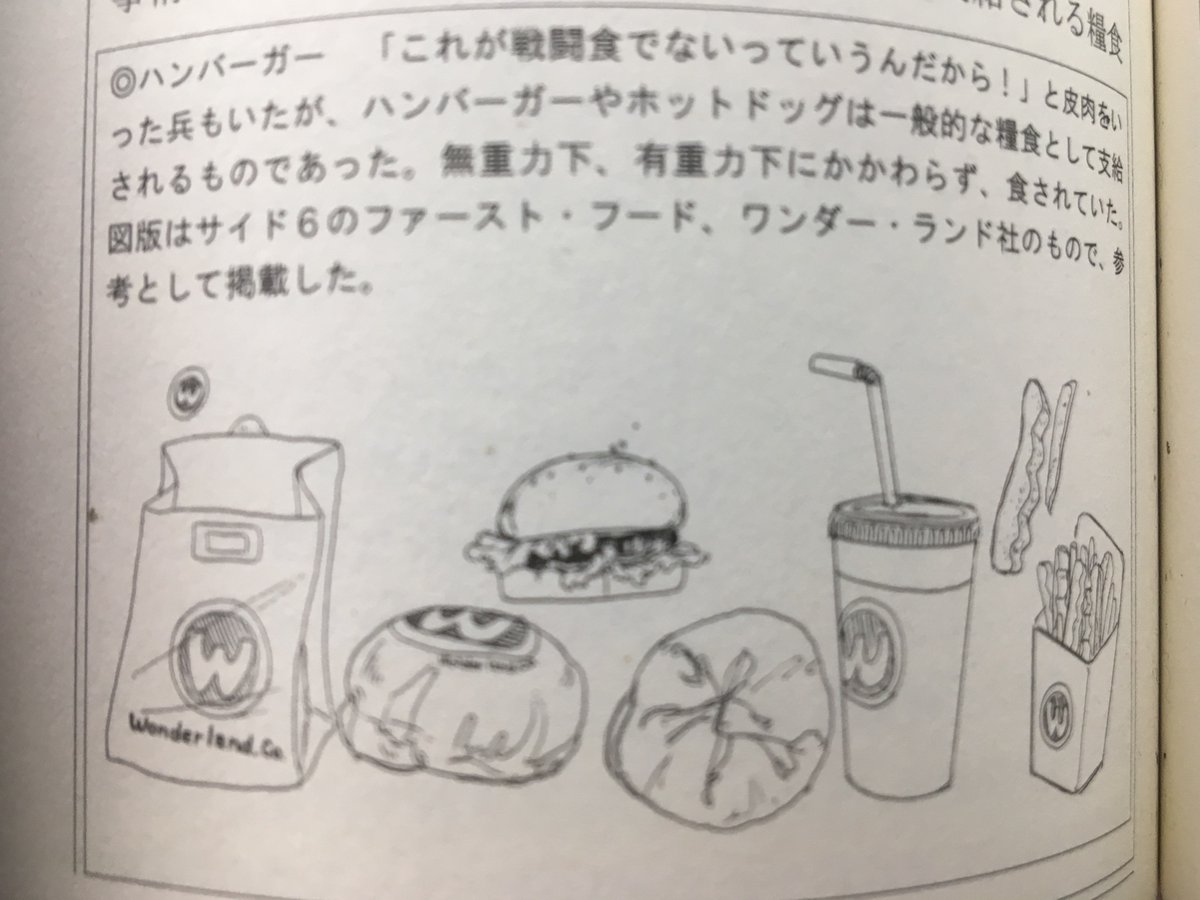 される糧食
◎ハンバーガー 「これが戦闘食でないっていうんだから！」と皮肉をい
った兵もいたが、ハンバーガーやホットドッグは一般的な糧食として支給
されるものであった。無重力下、有重力下にかかわらず、食されていた。
図版はサイド６のファースト・フード、ワンダー・ランド社のもので、参
考として掲載した。
W
W
Wonderland.Co
W
W
W